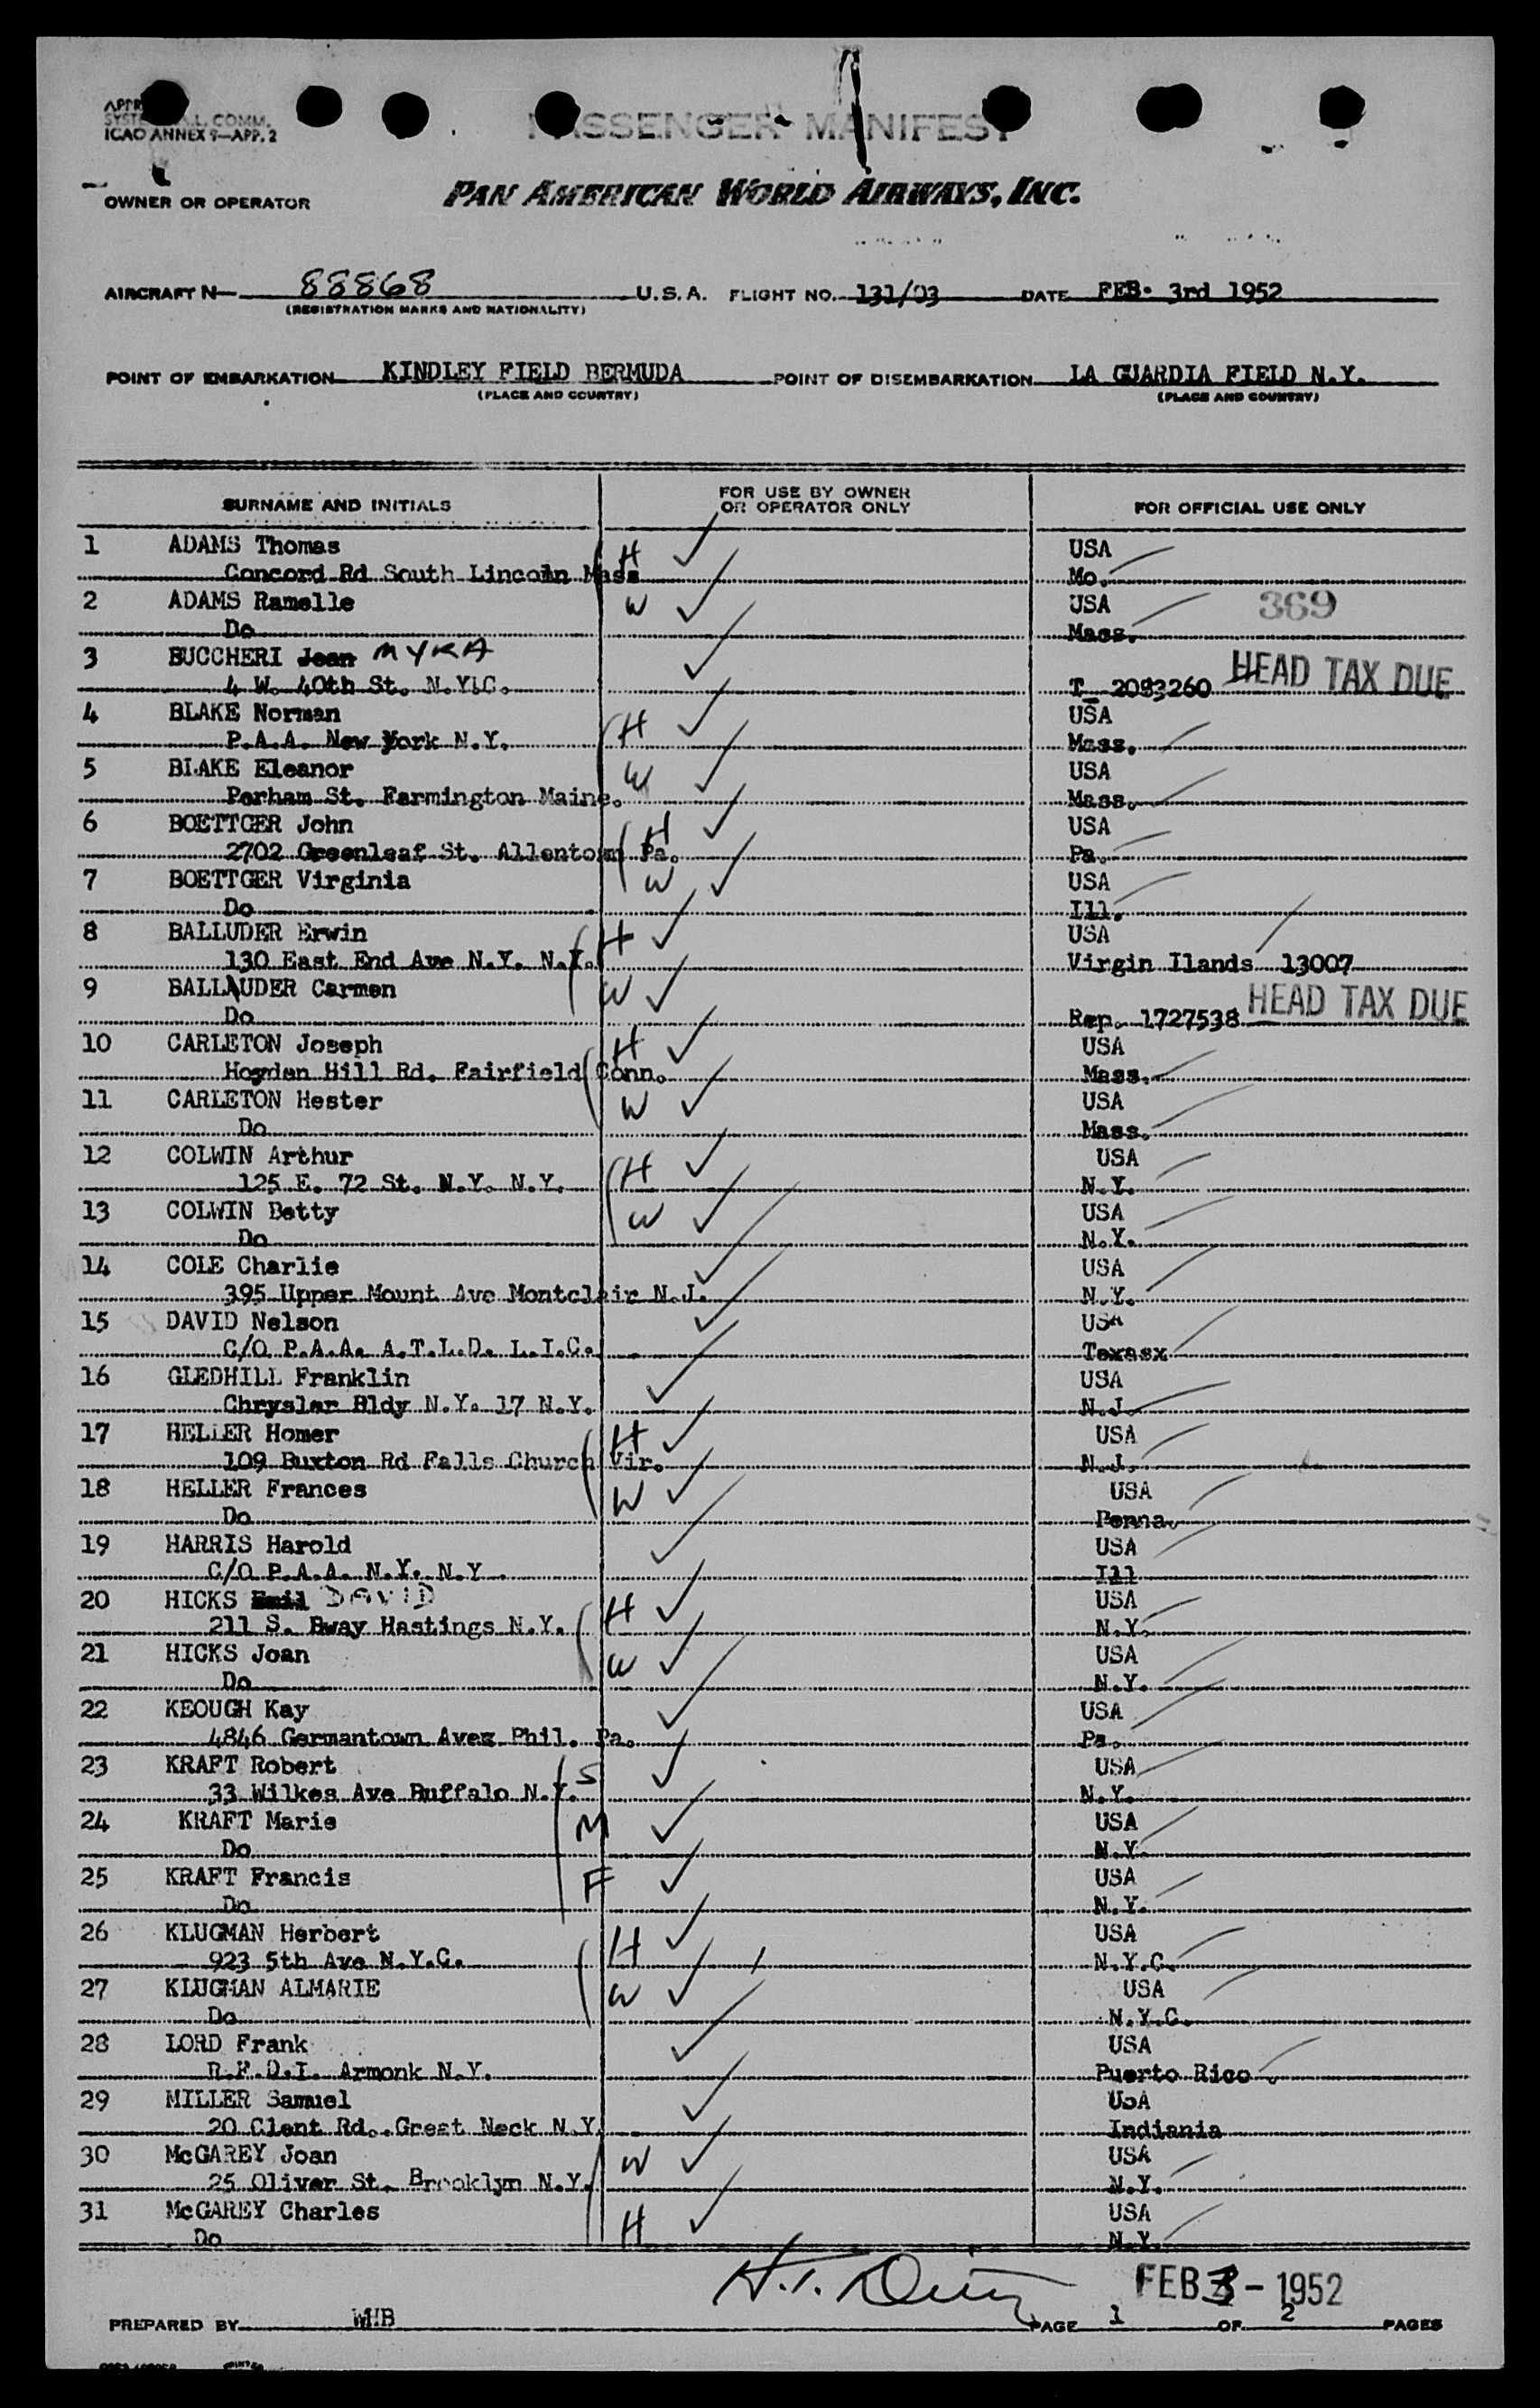 ICAO ANNEX 9—APP. 2
PASSENGER MANIFEST
OWNER OR OPERATOR PAN AMERICAN WORLD AIRWAYS, INC.
AIRCRAFT N 88868 U.S.A. FLIGHT NO. 131/03 DATE FEB. 3rd 1952
(REGISTRATION MARKS AND NATIONALITY)
POINT OF EMBARKATION KINDLEY FIELD BERMUDA POINT OF DISEMBARKATION LA GUARDIA FIELD N.Y.
(PLACE AND COUNTRY) (PLACE AND COUNTRY)
SURNAME AND INITIALS FOR USE BY OWNER OR OPERATOR ONLY FOR OFFICIAL USE ONLY
1 ADAMS Thomas H USA
Concord Rd South Lincoln Mass Mo.
2 ADAMS Ramelle W USA 369
Do Mass.
3 BUCCHERI Jean MYRA
4 W. 40th St. N.Y.C. T 2093260 HEAD TAX DUE
4 BLAKE Norman H USA
P.A.A. New York N.Y. Mass.
5 BLAKE Eleanor W USA
Perham St. Farmington Maine. Mass.
6 BOETTGER John H USA
2702 Greenleaf St. Allentown Pa. Pa.
7 BOETTGER Virginia W USA
Do Ill.
8 BALLUDER Erwin H USA
130 East End Ave N.Y. N.Y. Virgin Ilands 13007
9 BALLAUDER Carmen W
Do Rep. 1727538 HEAD TAX DUE
10 CARLETON Joseph H USA
Hogden Hill Rd. Fairfield Conn. Mass.
11 CARLETON Hester W USA
Do Mass.
12 COLWIN Arthur H USA
125 E. 72 St. N.Y. N.Y. N.Y.
13 COLWIN Betty W USA
Do N.Y.
14 COLE Charlie USA
395 Upper Mount Ave Montclair N.J. N.Y.
15 DAVID Nelson USA
C/O P.A.A. A.T.L.D. L.I.C. Texasx
16 GLEDHILL Franklin USA
Chrysler Bldy N.Y. 17 N.Y. N.J.
17 HELLER Homer H USA
109 Buxton Rd Falls Church Vir. N.J.
18 HELLER Frances W USA
Do Penna.
19 HARRIS Harold USA
C/O P.A.A. N.Y. N.Y. Ill
20 HICKS Emil DAVID H USA
211 S. Bway Hastings N.Y. N.Y.
21 HICKS Joan W USA
Do N.Y.
22 KEOUGH Kay USA
4846 Germantown Avex Phil. Pa. Pa.
23 KRAFT Robert S USA
33 Wilkes Ave Buffalo N.Y. N.Y.
24 KRAFT Marie M USA
Do N.Y.
25 KRAFT Francis F USA
Do N.Y.
26 KLUGMAN Herbert H USA
923 5th Ave N.Y.C. N.Y.C.
27 KLUGMAN ALMARIE W USA
Do N.Y.C.
28 LORD Frank USA
R.F.D.I. Armonk N.Y. Puerto Rico.
29 MILLER Samuel USA
20 Clent Rd. Great Neck N.Y. Indiania
30 McGAREY Joan W USA
25 Oliver St. Brooklyn N.Y. N.Y.
31 McGAREY Charles H USA
Do N.Y.
FEB 3 - 1952
PREPARED BY WHB PAGE 1 OF 2 PAGES